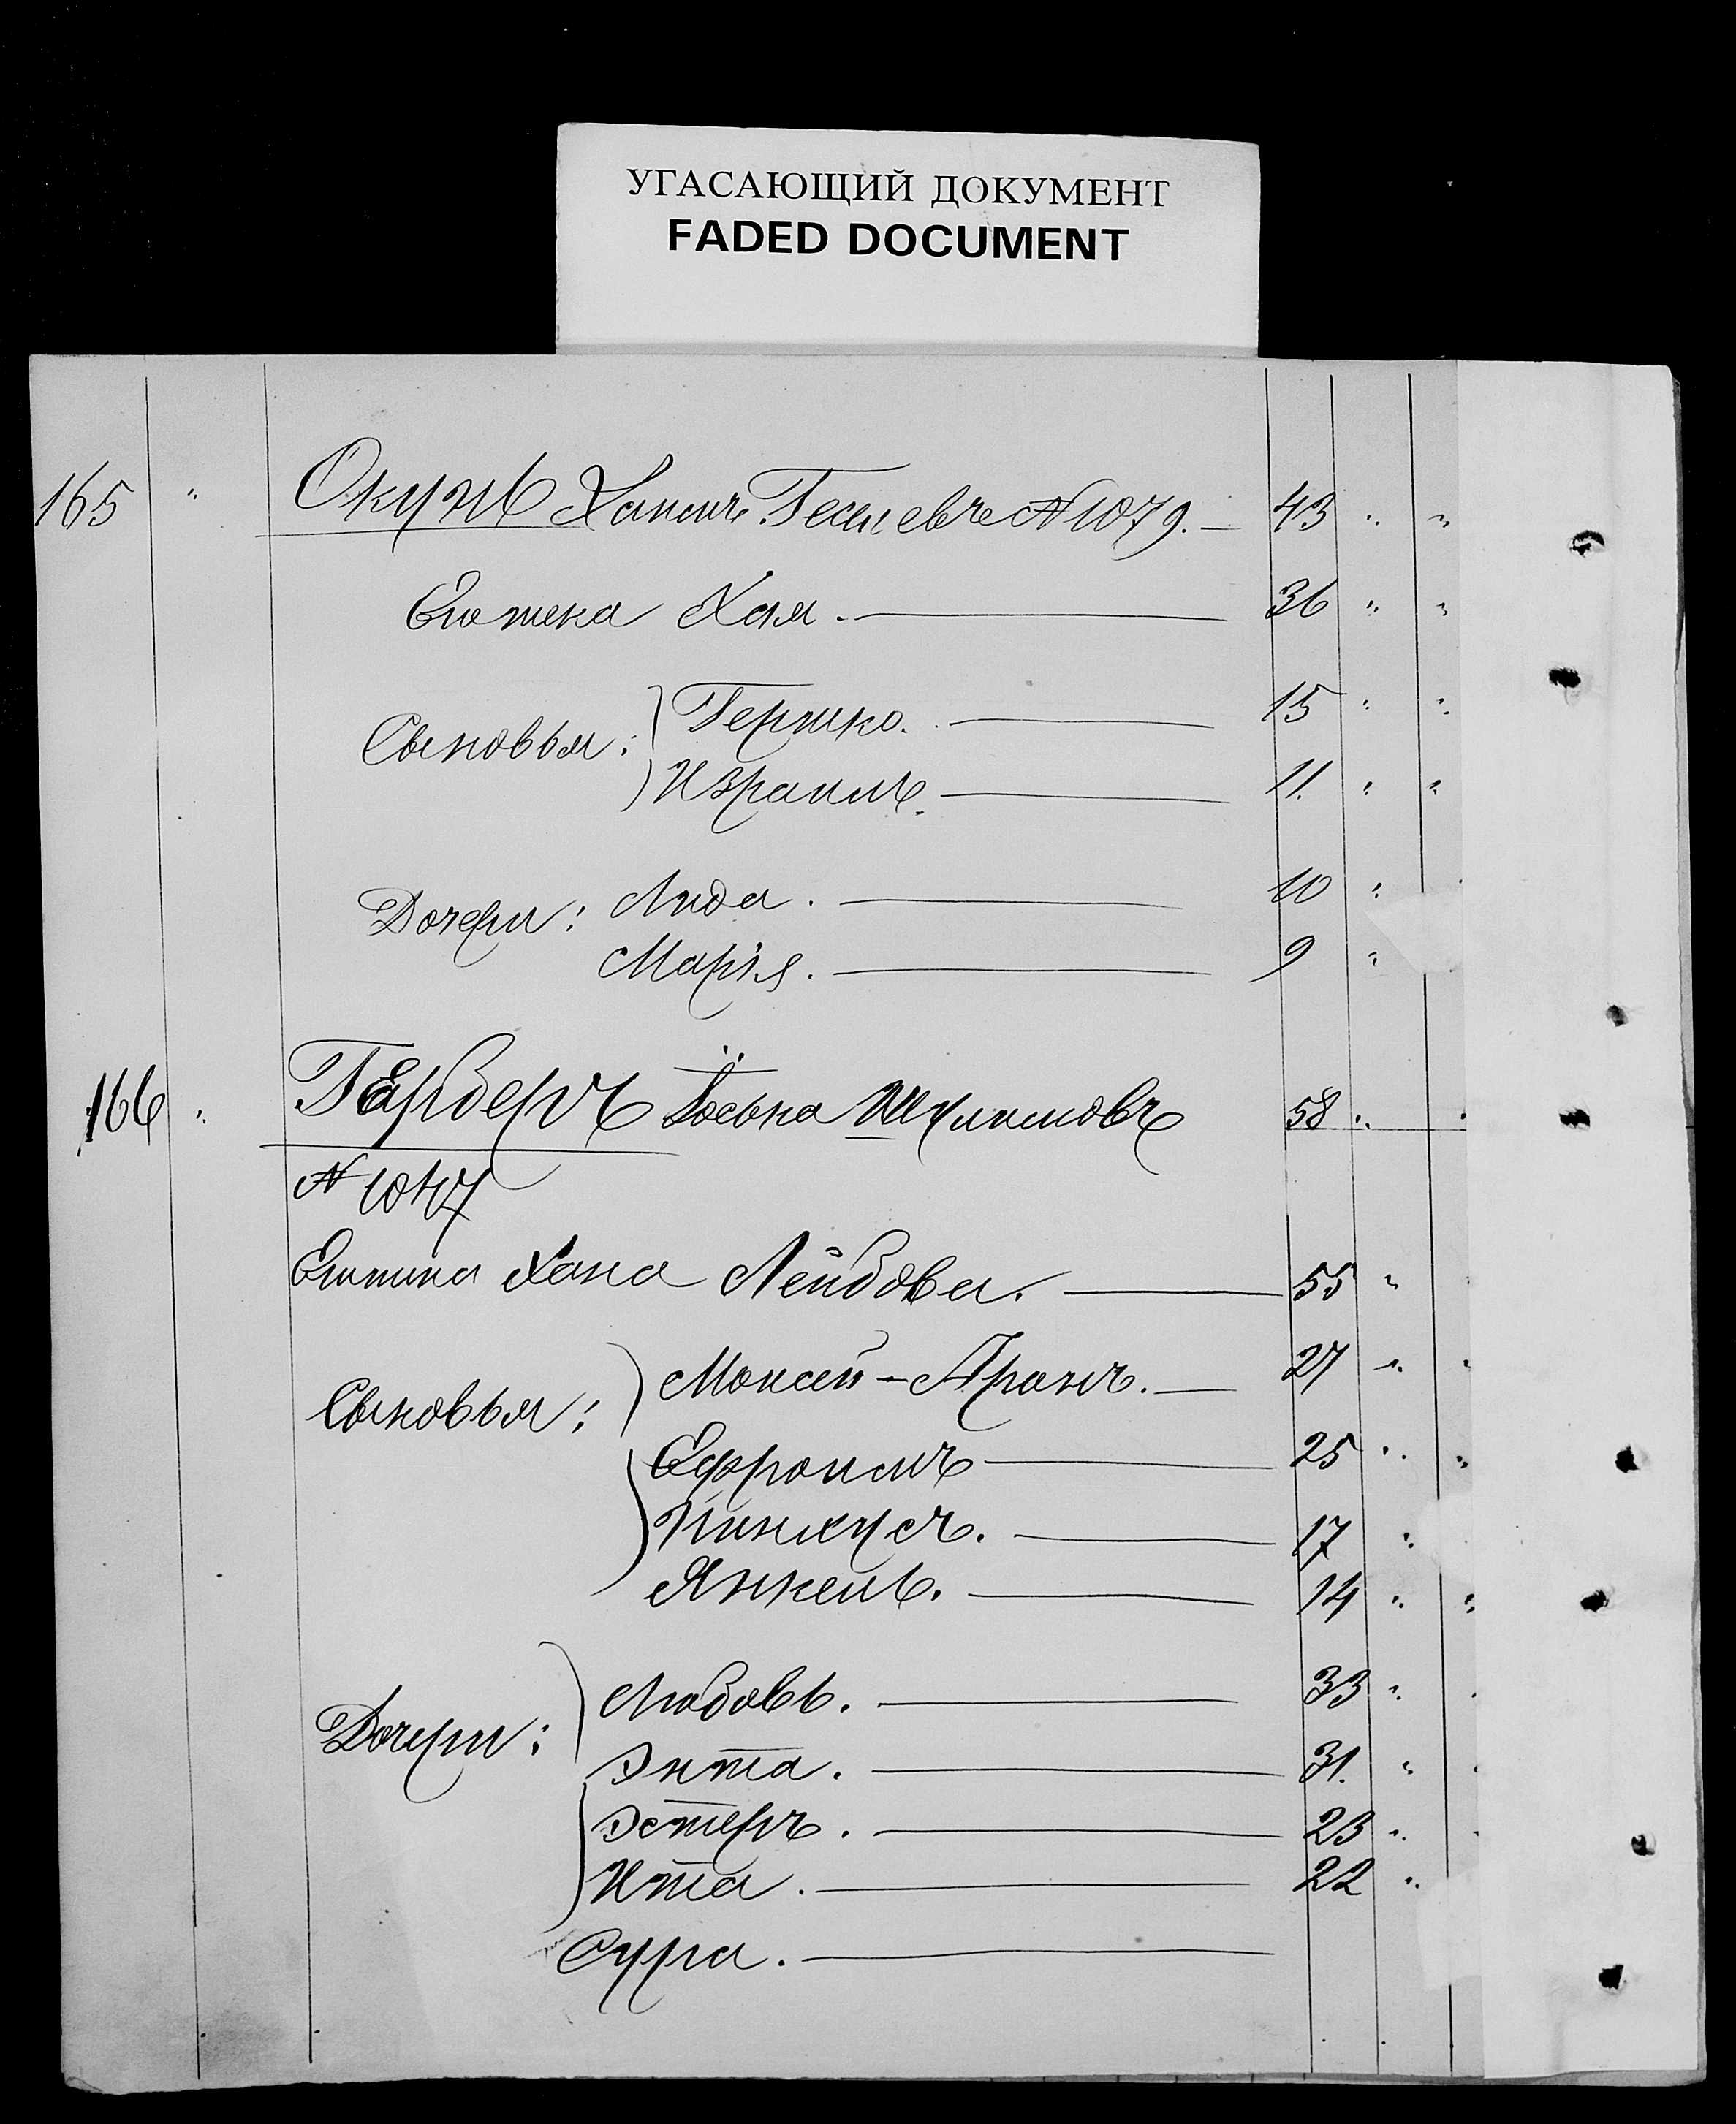 УГАСАЮЩИЙ ДОКУМЕНТ
FADED DOCUMENT
165 " Окунь Хаимъ Геселевъ № 1079. — 43 " "
Его жена Хая. — 36 " "
Сыновья: Гершко. — 15 " "
Израиль. — 11. " "
Дочери: Лида. — 10 "
Марія. — 9 "
166 " Гарберъ Іоська Шулимовъ 58 "
№ 1047
Его жена Хана Лейбова. — 55 "
Сыновья: Моисей-Аронъ. — 27 "
Ефроимъ — 25 " "
Пинхусъ. — 17 "
Янкель. — 14 " "
Дочери: Любовь. — 33 "
Энта. — 31. "
Эстеръ. — 23 "
Ита. — 22 "
Сура. —